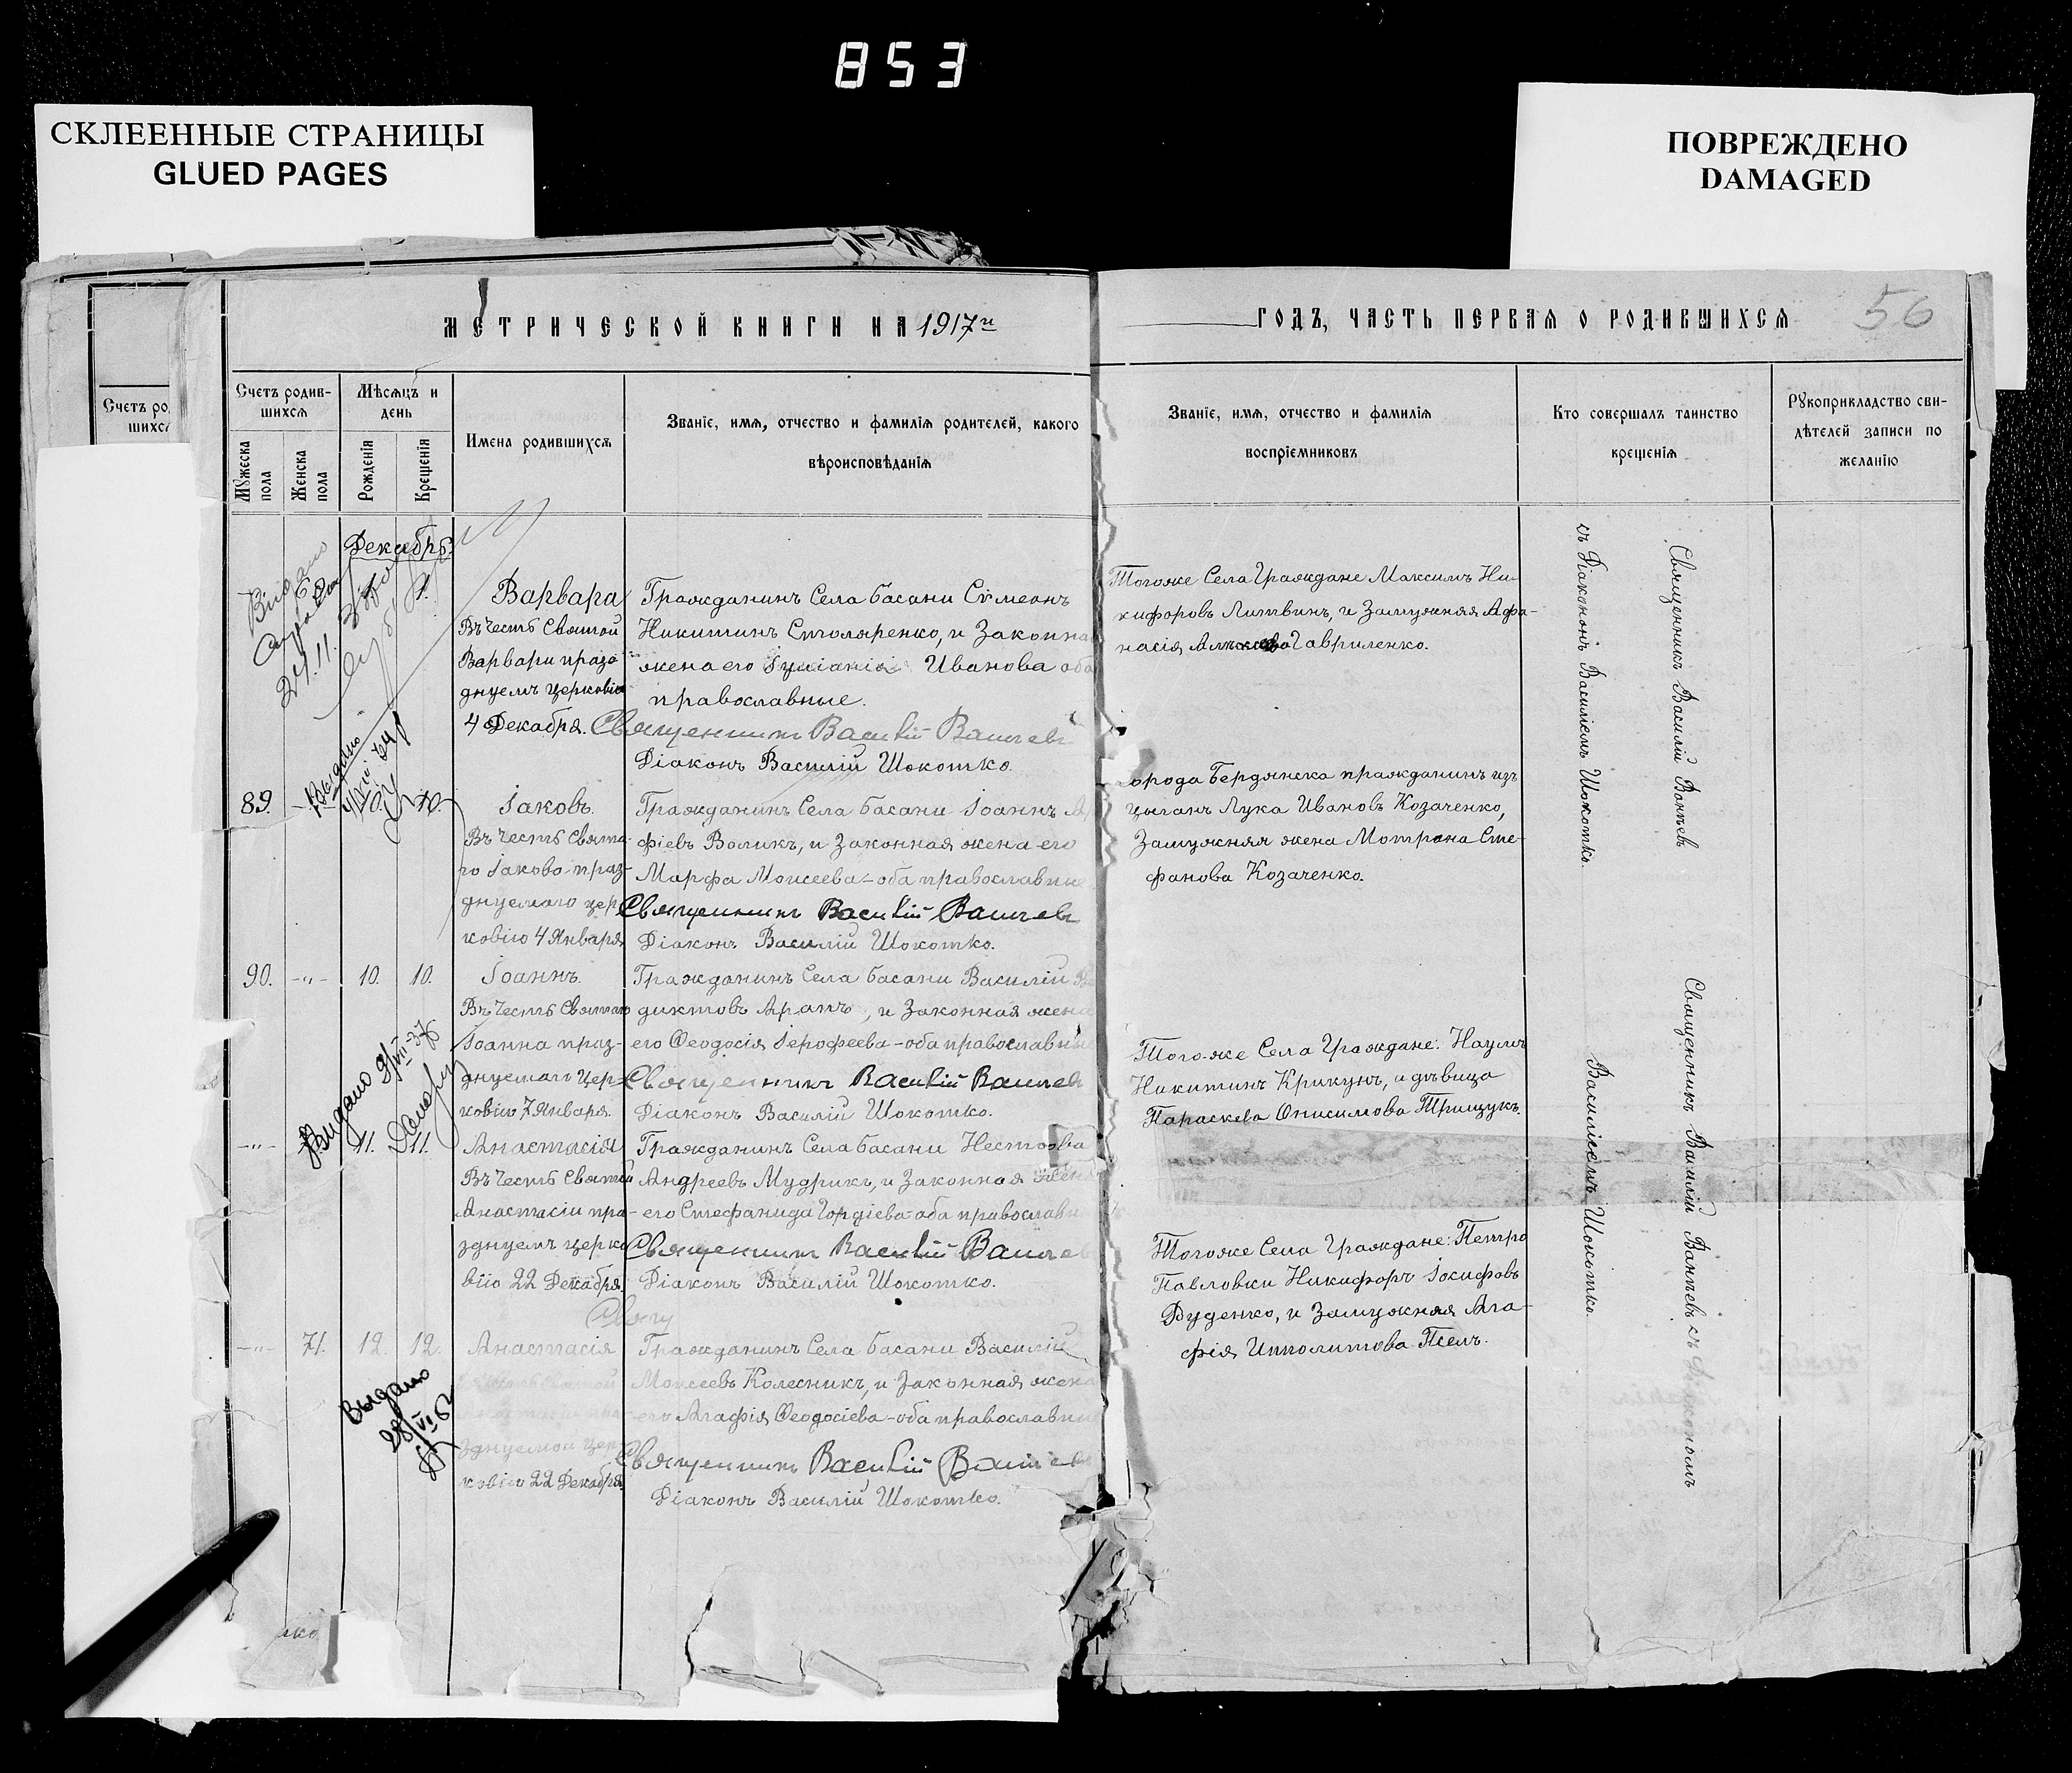 853
СКЛЕЕННЫЕ СТРАНИЦЫ
GLUED PAGES
ПОВРЕЖДЕНО
DAMAGED
МЕТРИЧЕСКОЙ КНИГИ НА 1917й
ГОДЪ, ЧАСТЬ ПЕРВАЯ О РОДИВШИХСЯ
56
Счетъ родив-
шихся
Мѣсяцъ и
день
Мужеска пола
Женска пола
Рожденія
Крещенія
Имена родившихся
Званіе, имя, отчество и фамилія родителей, какого
вѣроисповѣданія
Званіе, имя, отчество и фамилія
воспріемниковъ
Кто совершалъ таинство
крещенія
Рукоприкладство сви-
дѣтелей записи по
желанію
Декабрь.
Варвара
Въ честь Святой
Варвары празд
днуем. церковію
4 Декабря.
Гражданинъ Села Басани Сѵмеонъ
Никитинъ Столяренко, и Законна
жена его Іуліанія Иванова оба
православные.
Священникъ Василій Ванчевъ
Діаконъ Василій Шокотко.
Тогоже Села Граждане Максимъ Ни-
кифоровъ Литвинъ, и Замужняя Афа-
насія Гавриленко.
Священникъ Василій Ванчевъ
съ Діакономъ Василіемъ Шокотко.
Выдано
89.
10.
10.
Іаковъ.
Въ честь Свята-
го Іакова праз-
днуемаго цер
ковію 4 Января
Гражданинъ Села Басани Іоаннъ
фіевъ Воликъ, и Законная жена его
Марфа Моисеева - оба православные
Священникъ Василій Ванчевъ
Діаконъ Василій Шокотко.
орода Бердянска гражданинъ изъ
цыганъ Лука Ивановъ Козаченко,
Замужняя жена Мотрона Сте-
фанова Козаченко.
90.
-"-
10.
10.
Іоаннъ.
Въ честь Святаго
Іоанна праз-
днуемаго Цер-
ковію 7 Января.
Гражданинъ Села Басани Василій
диктовъ Арапъ, и Законная жена
его Ѳеодосія Іерофеева - оба православны
Священникъ Василій Ванчевъ
Діаконъ Василій Шокотко.
Того-же Села Граждане: Наумъ
Никитинъ Крикунъ, и дѣвица
Параскева Онисимова Трищукъ.
Священникъ Василій Ванчевъ съ Діакономъ
Василіемъ Шокотко.
Выдано
-"-
11.
11.
Анастасія
Въ честь Святой
Анастасіи пра-
зднуем. церко
вію 22 Декабря.
Гражданинъ Села Басани
Андреевъ Мудрикъ, и Законная жена
его Стефанида Гордіева оба православн
Священникъ Василій Ванчев
Діаконъ Василій Шокотко.
Тогоже Села Граждане: Петро
Павловки Никифоръ Іосифовъ
Дуденко, и Замужняя Ага-
фія Ипполитова Пселъ.
-"-
71.
12.
12.
Анастасія
зднуемой цер
ковію 22 Декабря
Гражданинъ Села Басани Василій
Моисеевъ Колесникъ, и Законная жена
его Агафія Ѳеодосіева - оба православны
Священникъ Василій Ванчев
Діаконъ Василій Шокотко.
Выдано